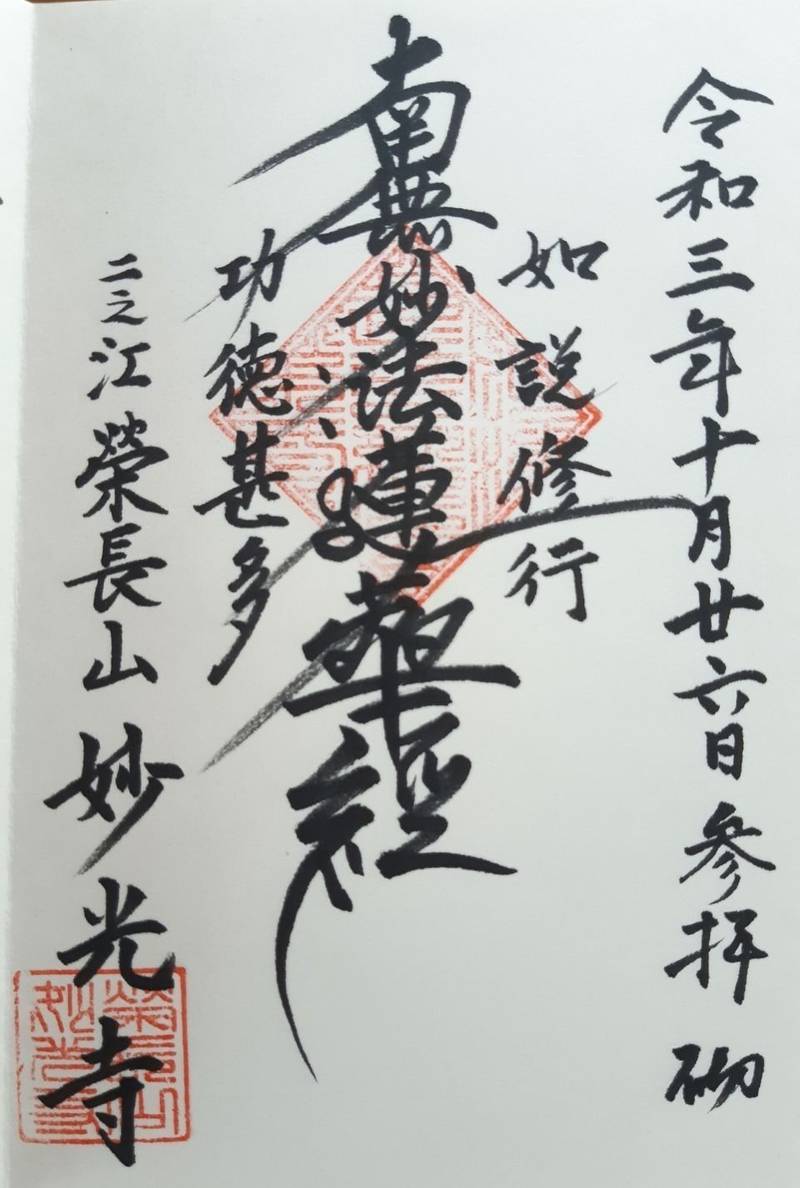 令和三年十月廿六日参拝 砌
如説修行
南無妙法蓮華経
功徳甚多
二之江 榮長山 妙光寺